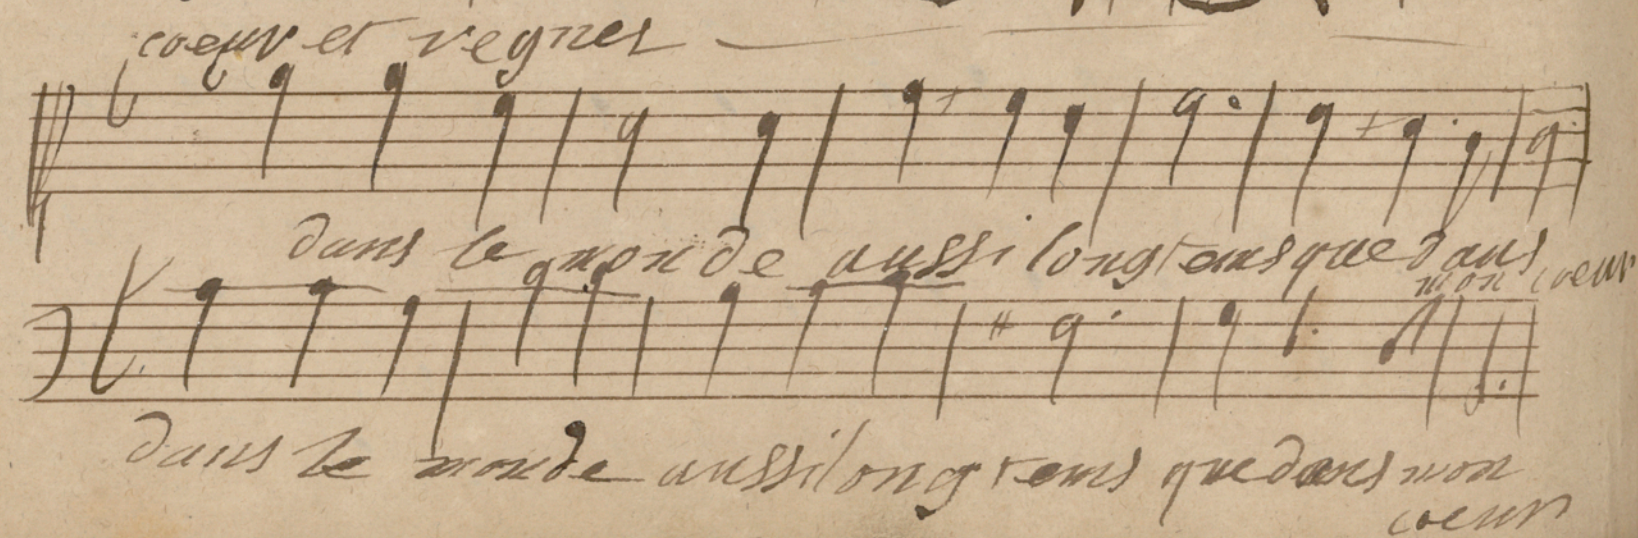 coeur et regner
dans le monde aussi longtems que dans
mon coeur
dans le monde aussi longtems que dans mon
coeur